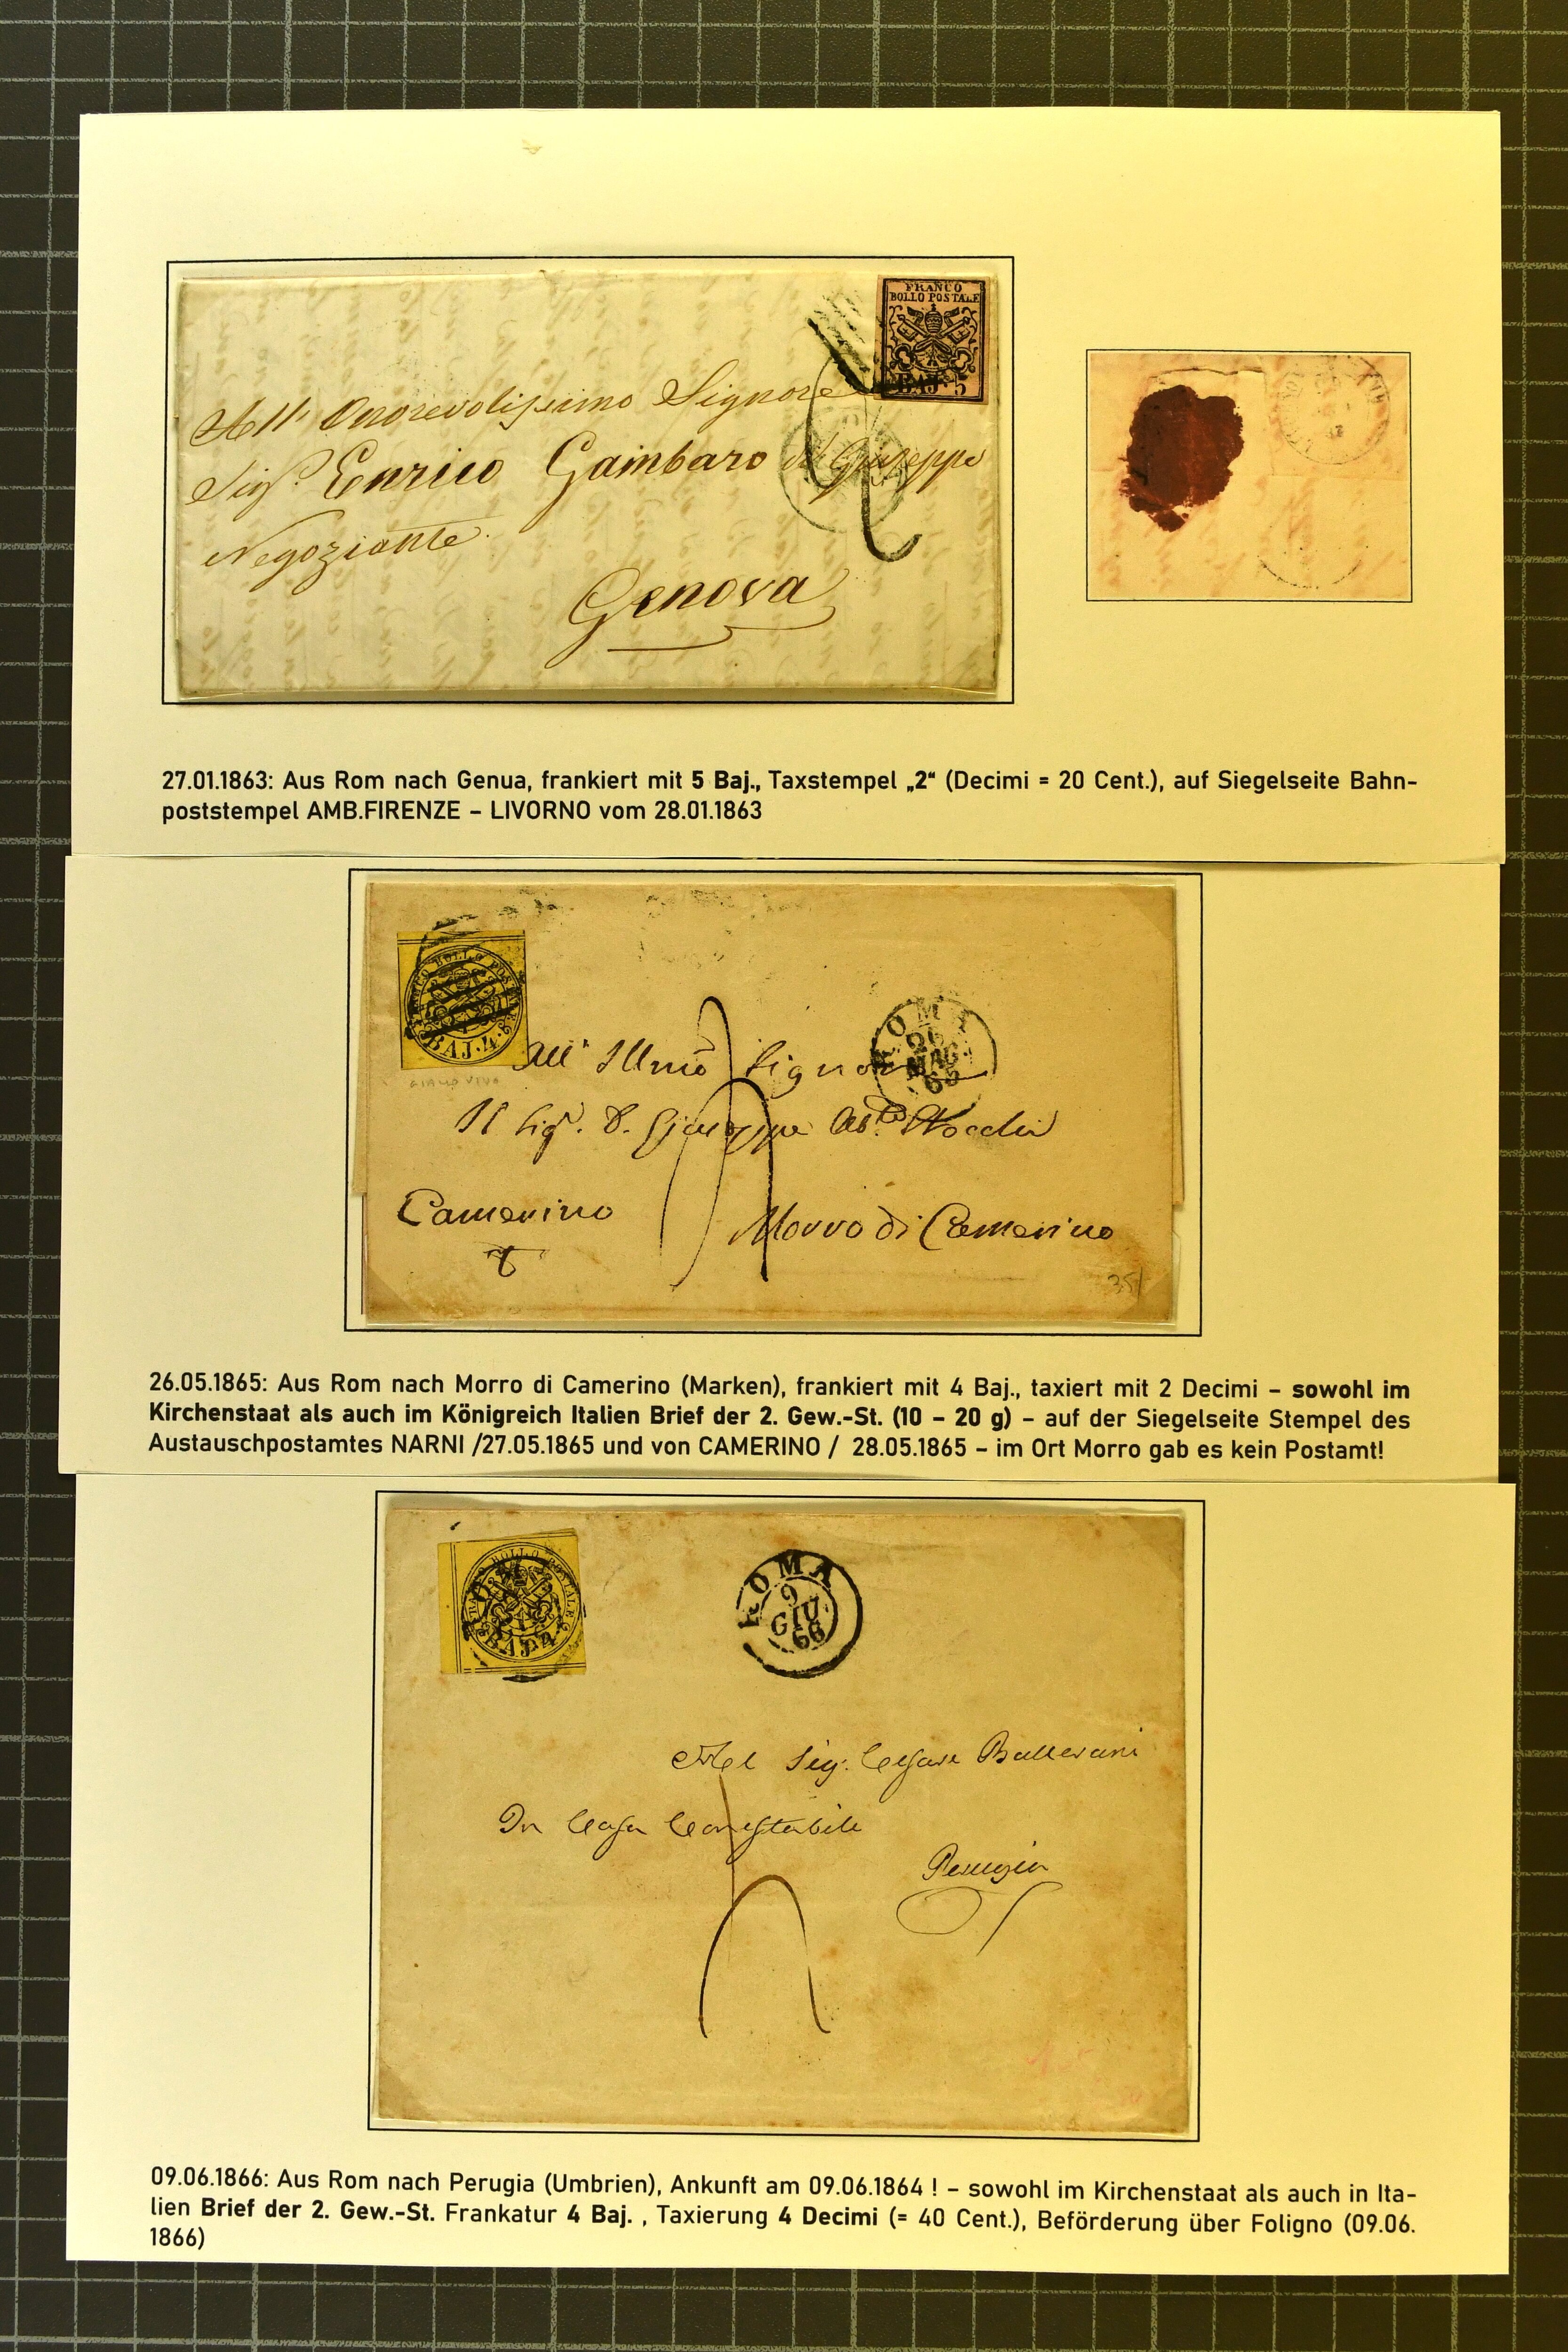 FRANCO
BOLLO POSTALE
BAJ. 5
All' Onorevolissimo Signore
Sig.r Enrico Gambaro di Giuseppe
Negoziante
Genova
27.01.1863: Aus Rom nach Genua, frankiert mit 5 Baj., Taxstempel „2“ (Decimi = 20 Cent.), auf Siegelseite Bahn-
poststempel AMB.FIRENZE – LIVORNO vom 28.01.1863
FRANCO BOLLO POSTALE
BAJ. 4
GIALLO VIVO
ROMA
26
MAG
65
All' Illmo Signore
Il Sig. D. Giuseppe
Camerino
Morro di Camerino
35
26.05.1865: Aus Rom nach Morro di Camerino (Marken), frankiert mit 4 Baj., taxiert mit 2 Decimi – sowohl im
Kirchenstaat als auch im Königreich Italien Brief der 2. Gew.-St. (10 – 20 g) – auf der Siegelseite Stempel des
Austauschpostamtes NARNI /27.05.1865 und von CAMERINO / 28.05.1865 – im Ort Morro gab es kein Postamt!
FRANCO BOLLO POSTALE
BAJ. 4
ROMA
9
GIU
66
Al Sig. Cesare Ballerani
In Casa Conestabile
Perugia
09.06.1866: Aus Rom nach Perugia (Umbrien), Ankunft am 09.06.1864 ! – sowohl im Kirchenstaat als auch in Ita-
lien Brief der 2. Gew.-St. Frankatur 4 Baj. , Taxierung 4 Decimi (= 40 Cent.), Beförderung über Foligno (09.06.
1866)